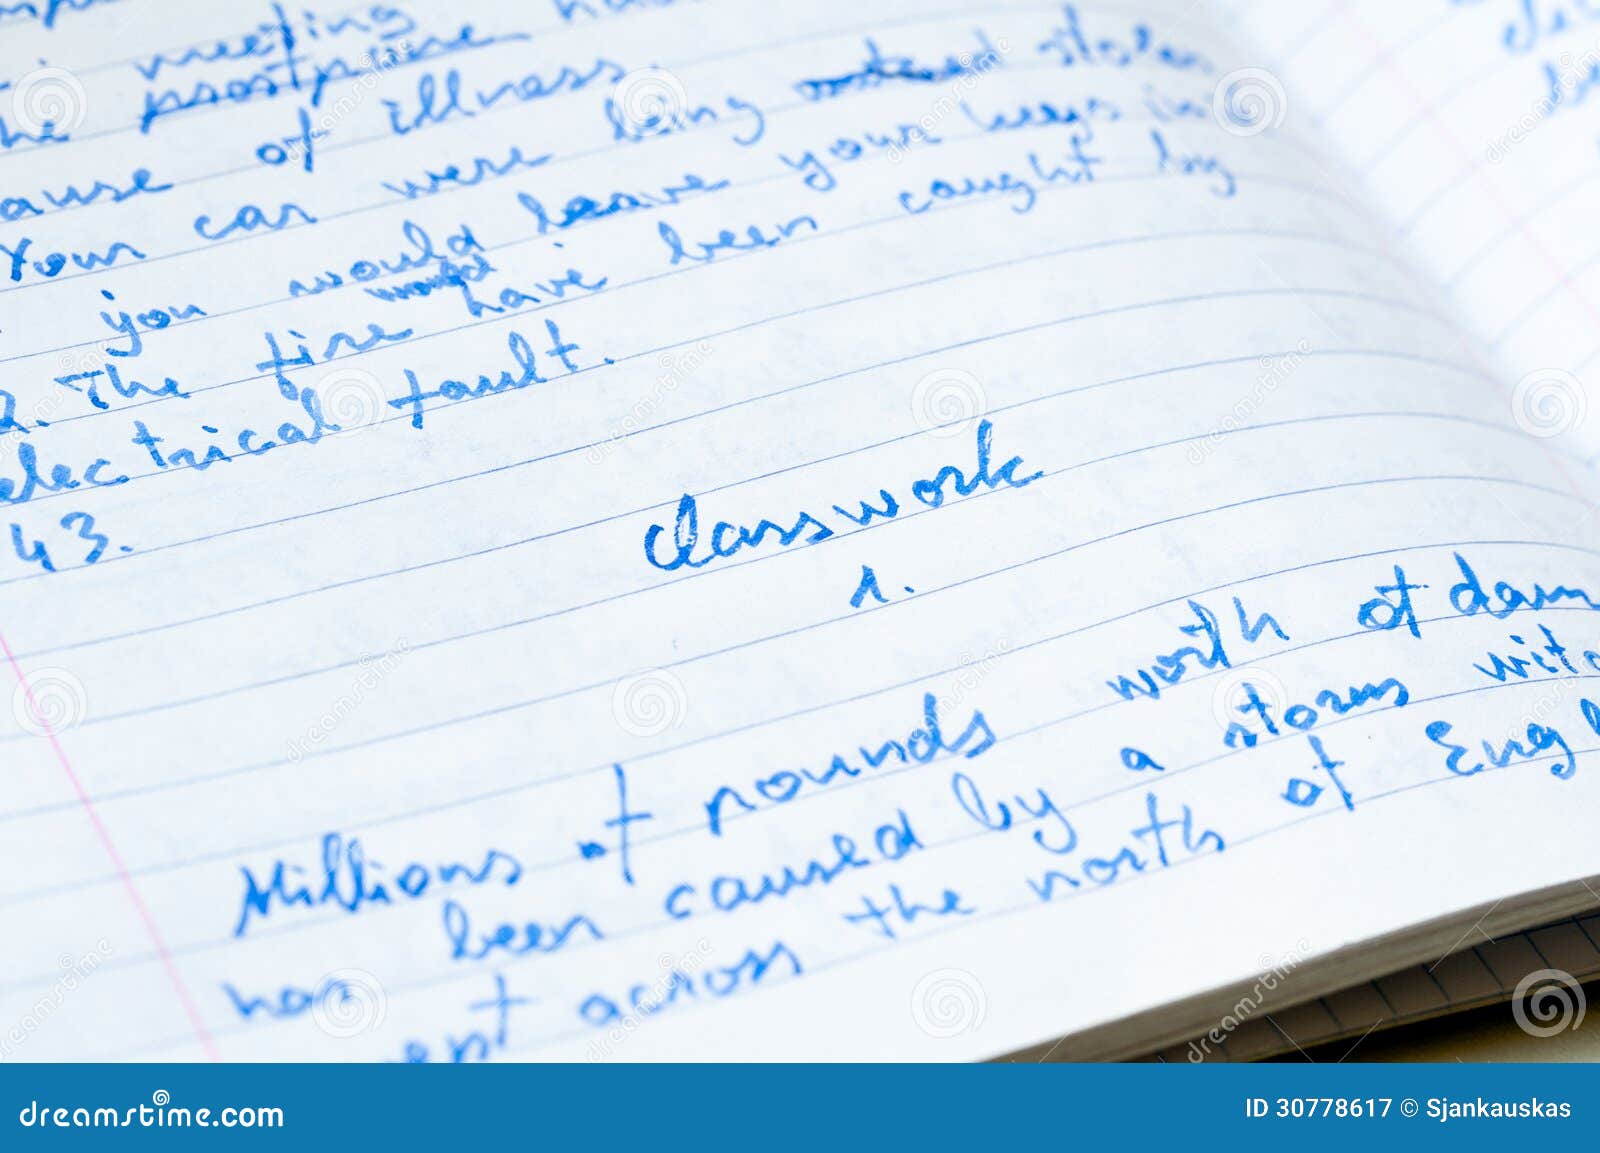 meeting
the prostpone
ause of illness.
Your car were being stolen
you would leave your keys in
would
2. The fire have been caught by
electrical fault.
43.
Classwork
1.
Millions of pounds worth of dam
has been caused by a storms
ent across the north of Engl
dreamstime.com
ID 30778617 © Sjankauskas